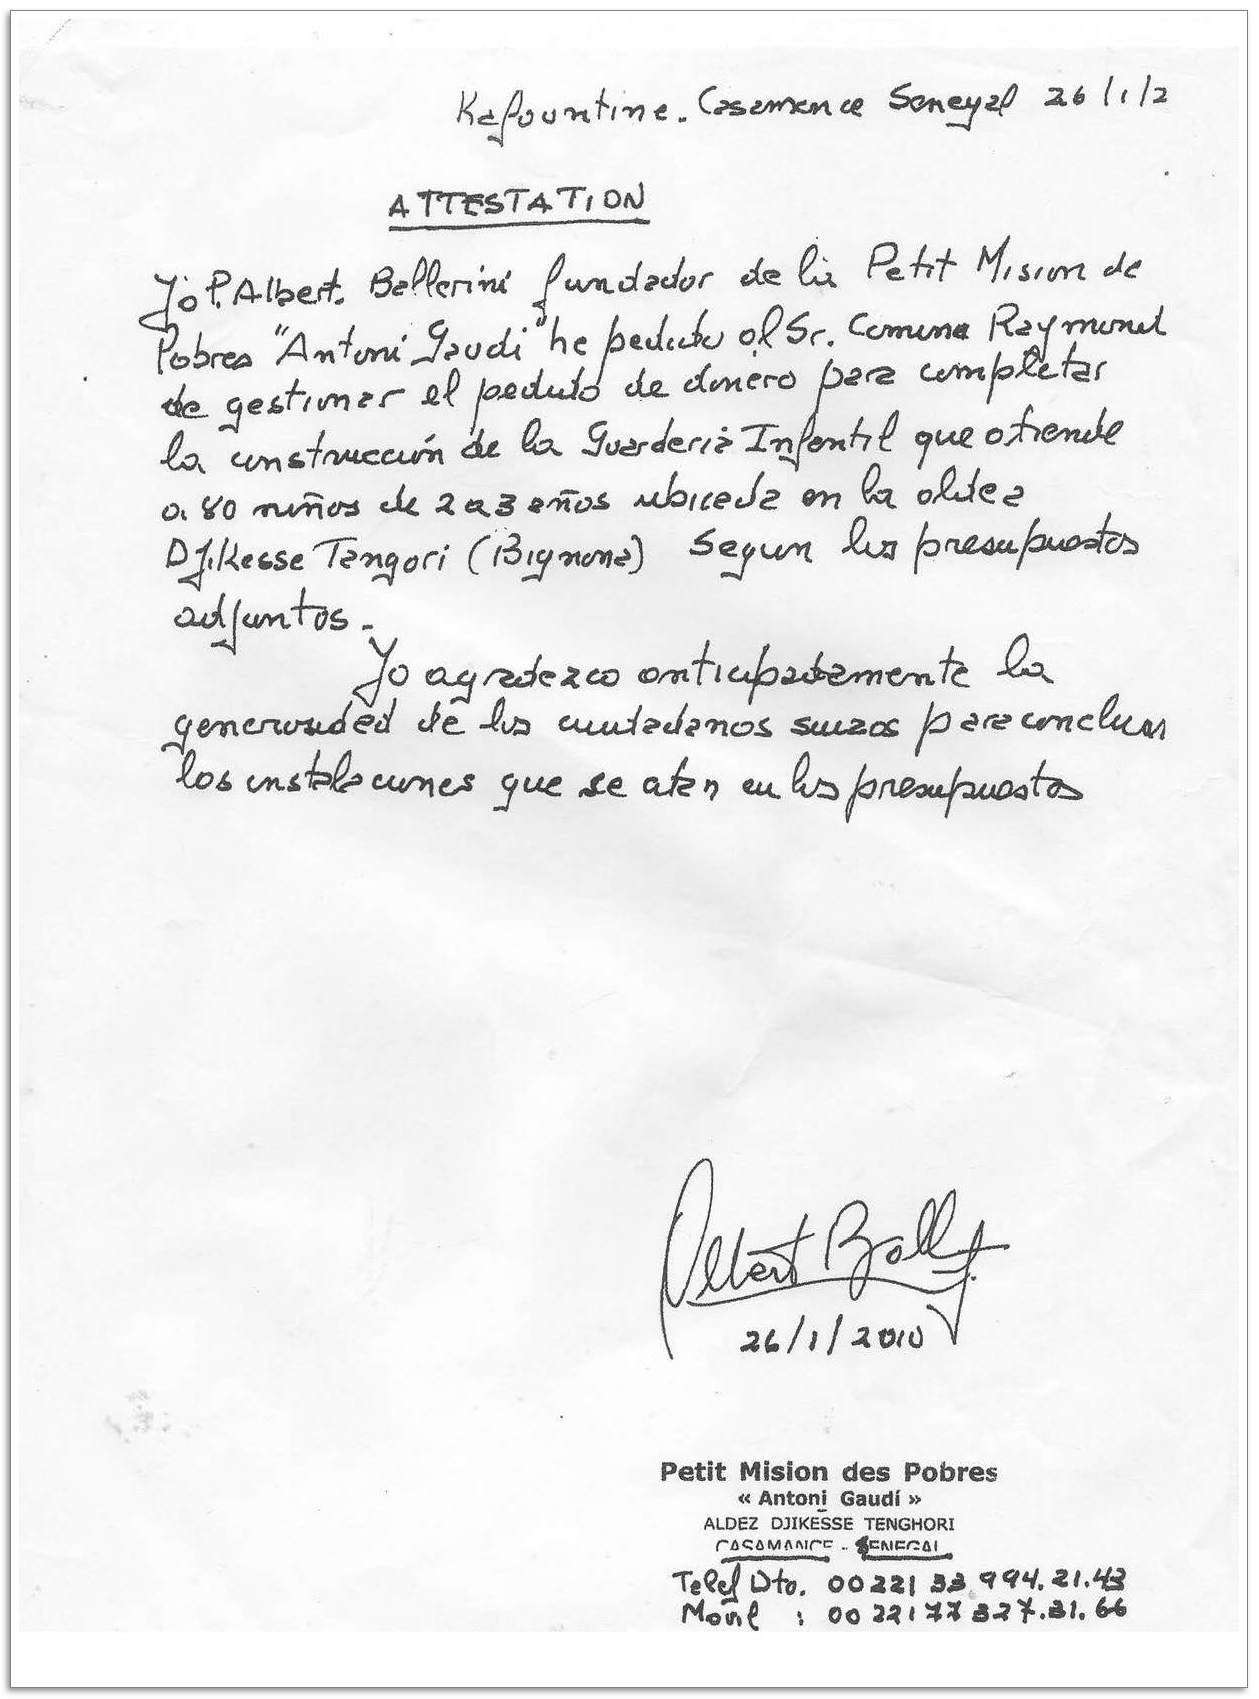 Kafountine. Casamance Senegal 26/1/2
ATTESTATION
Yo P. Albert. Ballerini fundador de la Petit Mision de
Pobres "Antoni Gaudi" he pedido al Sr. Comina Raymond
de gestionar el pedido de dinero para completar
la construcción de la Guarderia Infantil que atiende
a 80 niños de 2 a 3 años ubicada en la aldea
Djikesse Tengori (Bignona) Segun los presupuestos
adjuntos.-
Yo agradezco anticipadamente la
generosidad de los ciudadanos suizos para concluir
las instalaciones que se atan en los presupuestos
Albert Ball
26/1/2010
Petit Mision des Pobres
« Antoni Gaudí »
ALDEZ DJIKESSE TENGHORI
CASAMANCE - SENEGAL
Telef Dto. 00221 33 994.21.43
Movil : 00 221 77 327.31.66